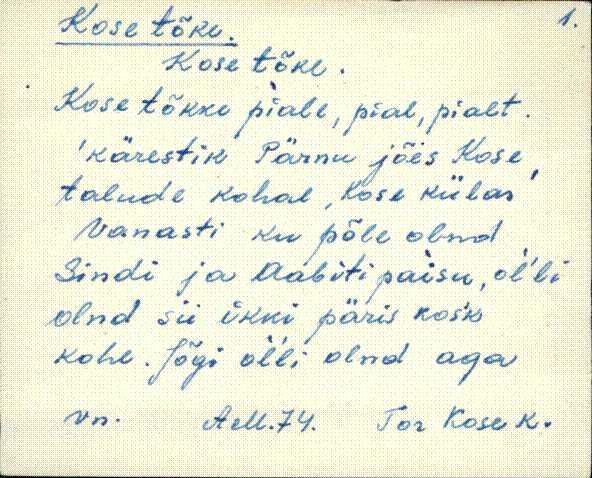 1.
Kose tõke.
Kose tõke.
Kose tõkke piale, pial, pialt.
'kärestik Pärnu jões Kose
talude kohal, Kose külas'
Vanasti ku põle olnd
Sindi ja Aabiti paisu, ol'li
olnd sii ikki päris kosk
kohe. Jõgi ol'li olnd aga
vn. AeM.74. Tor Kose k.